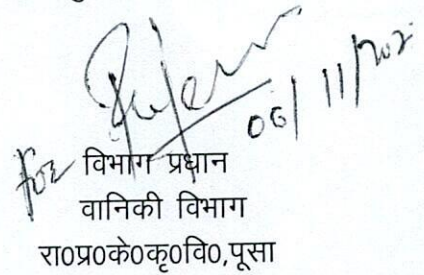 06/11/202
for विभाग प्रधान
वानिकी विभाग
रा0प्र0के0कृ0वि0,पूसा